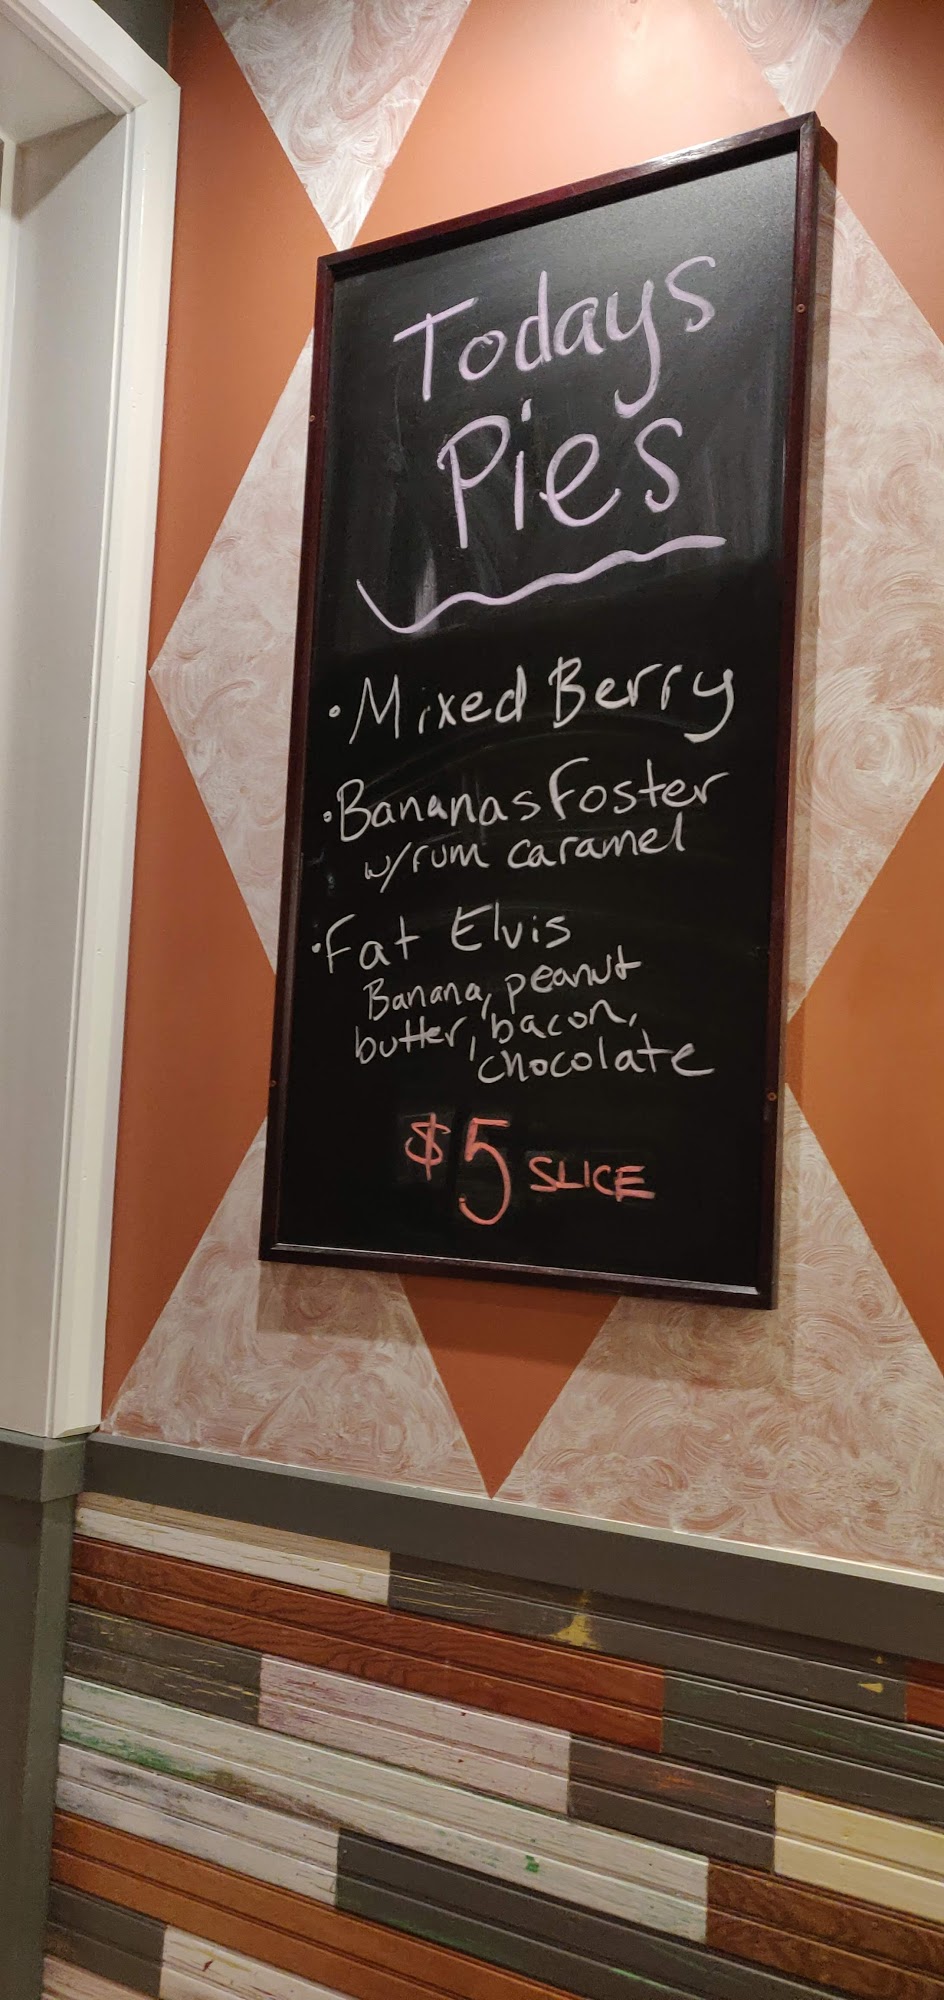 Todays
Pies
• Mixed Berry
• Bananas Foster
w/rum caramel
• Fat Elvis
Banana, peanut
butter, bacon,
chocolate
$5 SLICE